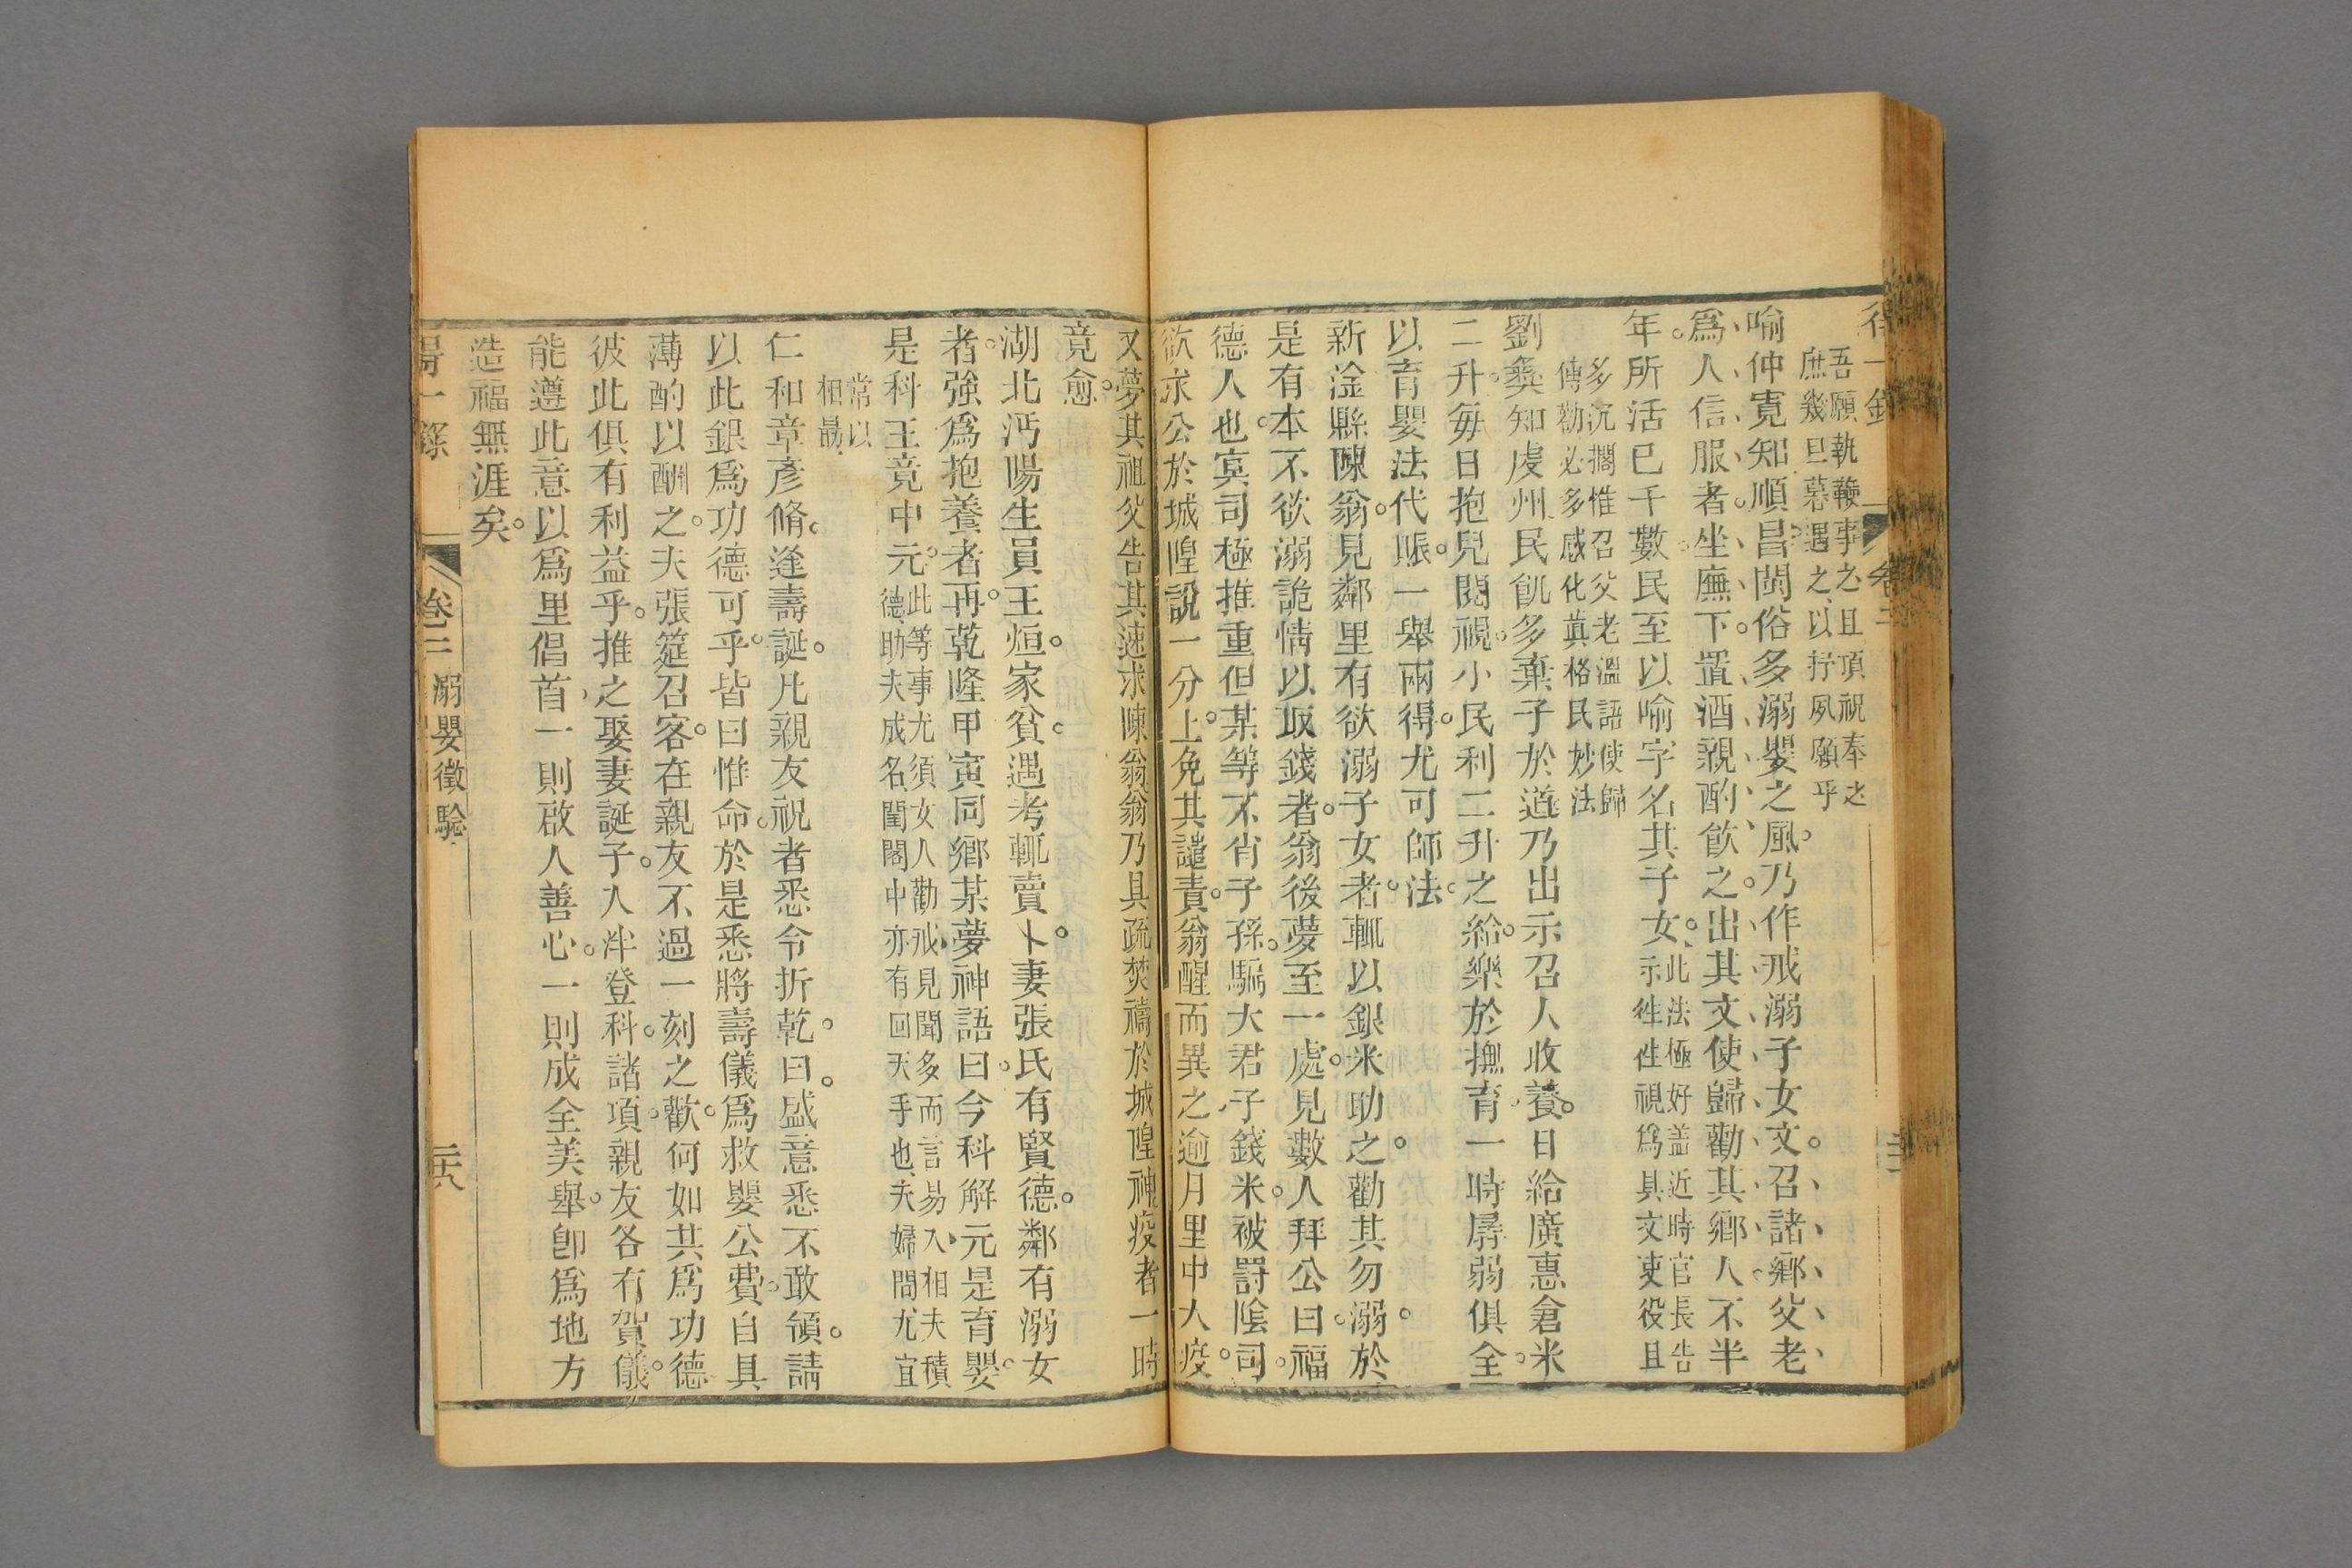 吾願執鞭事之且頂祝奉之
庶幾旦暮遇之以抒夙願乎
喻仲寬知順昌閩俗多溺嬰之風。乃作戒溺子女文。召諸鄉父老
爲人信服者。坐廡下。置酒親酌飲之。出其文使歸勸其鄉人。不半
年。所活已千數。民至以喻字名其子女。
此法極好盖近時官長告
示徃徃視爲具文吏役且
多沉擱惟召父老溫語使歸
傳勸必多感化眞格民妙法
劉彝知虔州民飢多棄子於道乃出示召人收養。日給廣惠倉米
二升。每日抱兒閱視。小民利二升之給。樂於撫育。一時孱弱俱全。
以育嬰法代賑。一舉兩得。尤可師法。
新淦縣陳翁。見鄰里有欲溺子女者。輒以銀米助之。勸其勿溺。於
是有本不欲溺詭情以取錢者。翁後夢至一處。見數人拜公曰。福
德人也。冥司極推重但某等不肖子孫。騙大君子錢米。被罸陰司。
欲求公於城隍說一分上。免其譴責。翁醒而異之逾月里中大疫。
又夢其祖父告其速求陳翁翁乃具疏焚禱於城隍神疫者一時
竟愈。
湖北沔陽生員王烜。家貧。遇考輒賣卜。妻張氏有賢德。鄰有溺女
者。強爲抱養者再。乾隆甲寅同鄉某夢神語曰。今科解元是育嬰。
是科王竟中元。
此等事尤須女人勸戒見聞多而言易入相夫積
德助夫成名閨閣中亦有回天手也夫婦間尤宜
常以
相勗
仁和章彥脩。逢壽誕。凡親友祝者悉令折乾。曰。盛意悉不敢領。請
以此銀爲功德可乎。皆曰惟命。於是悉將壽儀爲救嬰公費。自具
薄酌以酬之。夫張筵召客。在親友不過一刻之歡。何如共爲功德
彼此俱有利益乎。推之娶妻誕子。入泮登科。諸項。親友各有賀儀。
能遵此意以爲里倡首一則啟人善心。一則成全美舉。卽爲地方
造福無涯矣。
卷三
溺嬰徵驗
二十八